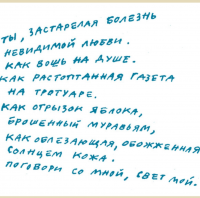 ТЫ, ЗАСТАРЕЛАЯ БОЛЕЗНЬ
НЕВИДИМОЙ ЛЮБВИ.
КАК ВОШЬ НА ДУШЕ.
КАК РАСТОПТАННАЯ ГАЗЕТА
НА ТРОТУАРЕ.
КАК ОГРЫЗОК ЯБЛОКА,
БРОШЕННЫЙ МУРАВЬЯМ,
КАК ОБЛЕЗАЮЩАЯ, ОБОЖЖЕННАЯ
СОЛНЦЕМ КОЖА.
ПОГОВОРИ СО МНОЙ, СВЕТ МОЙ.